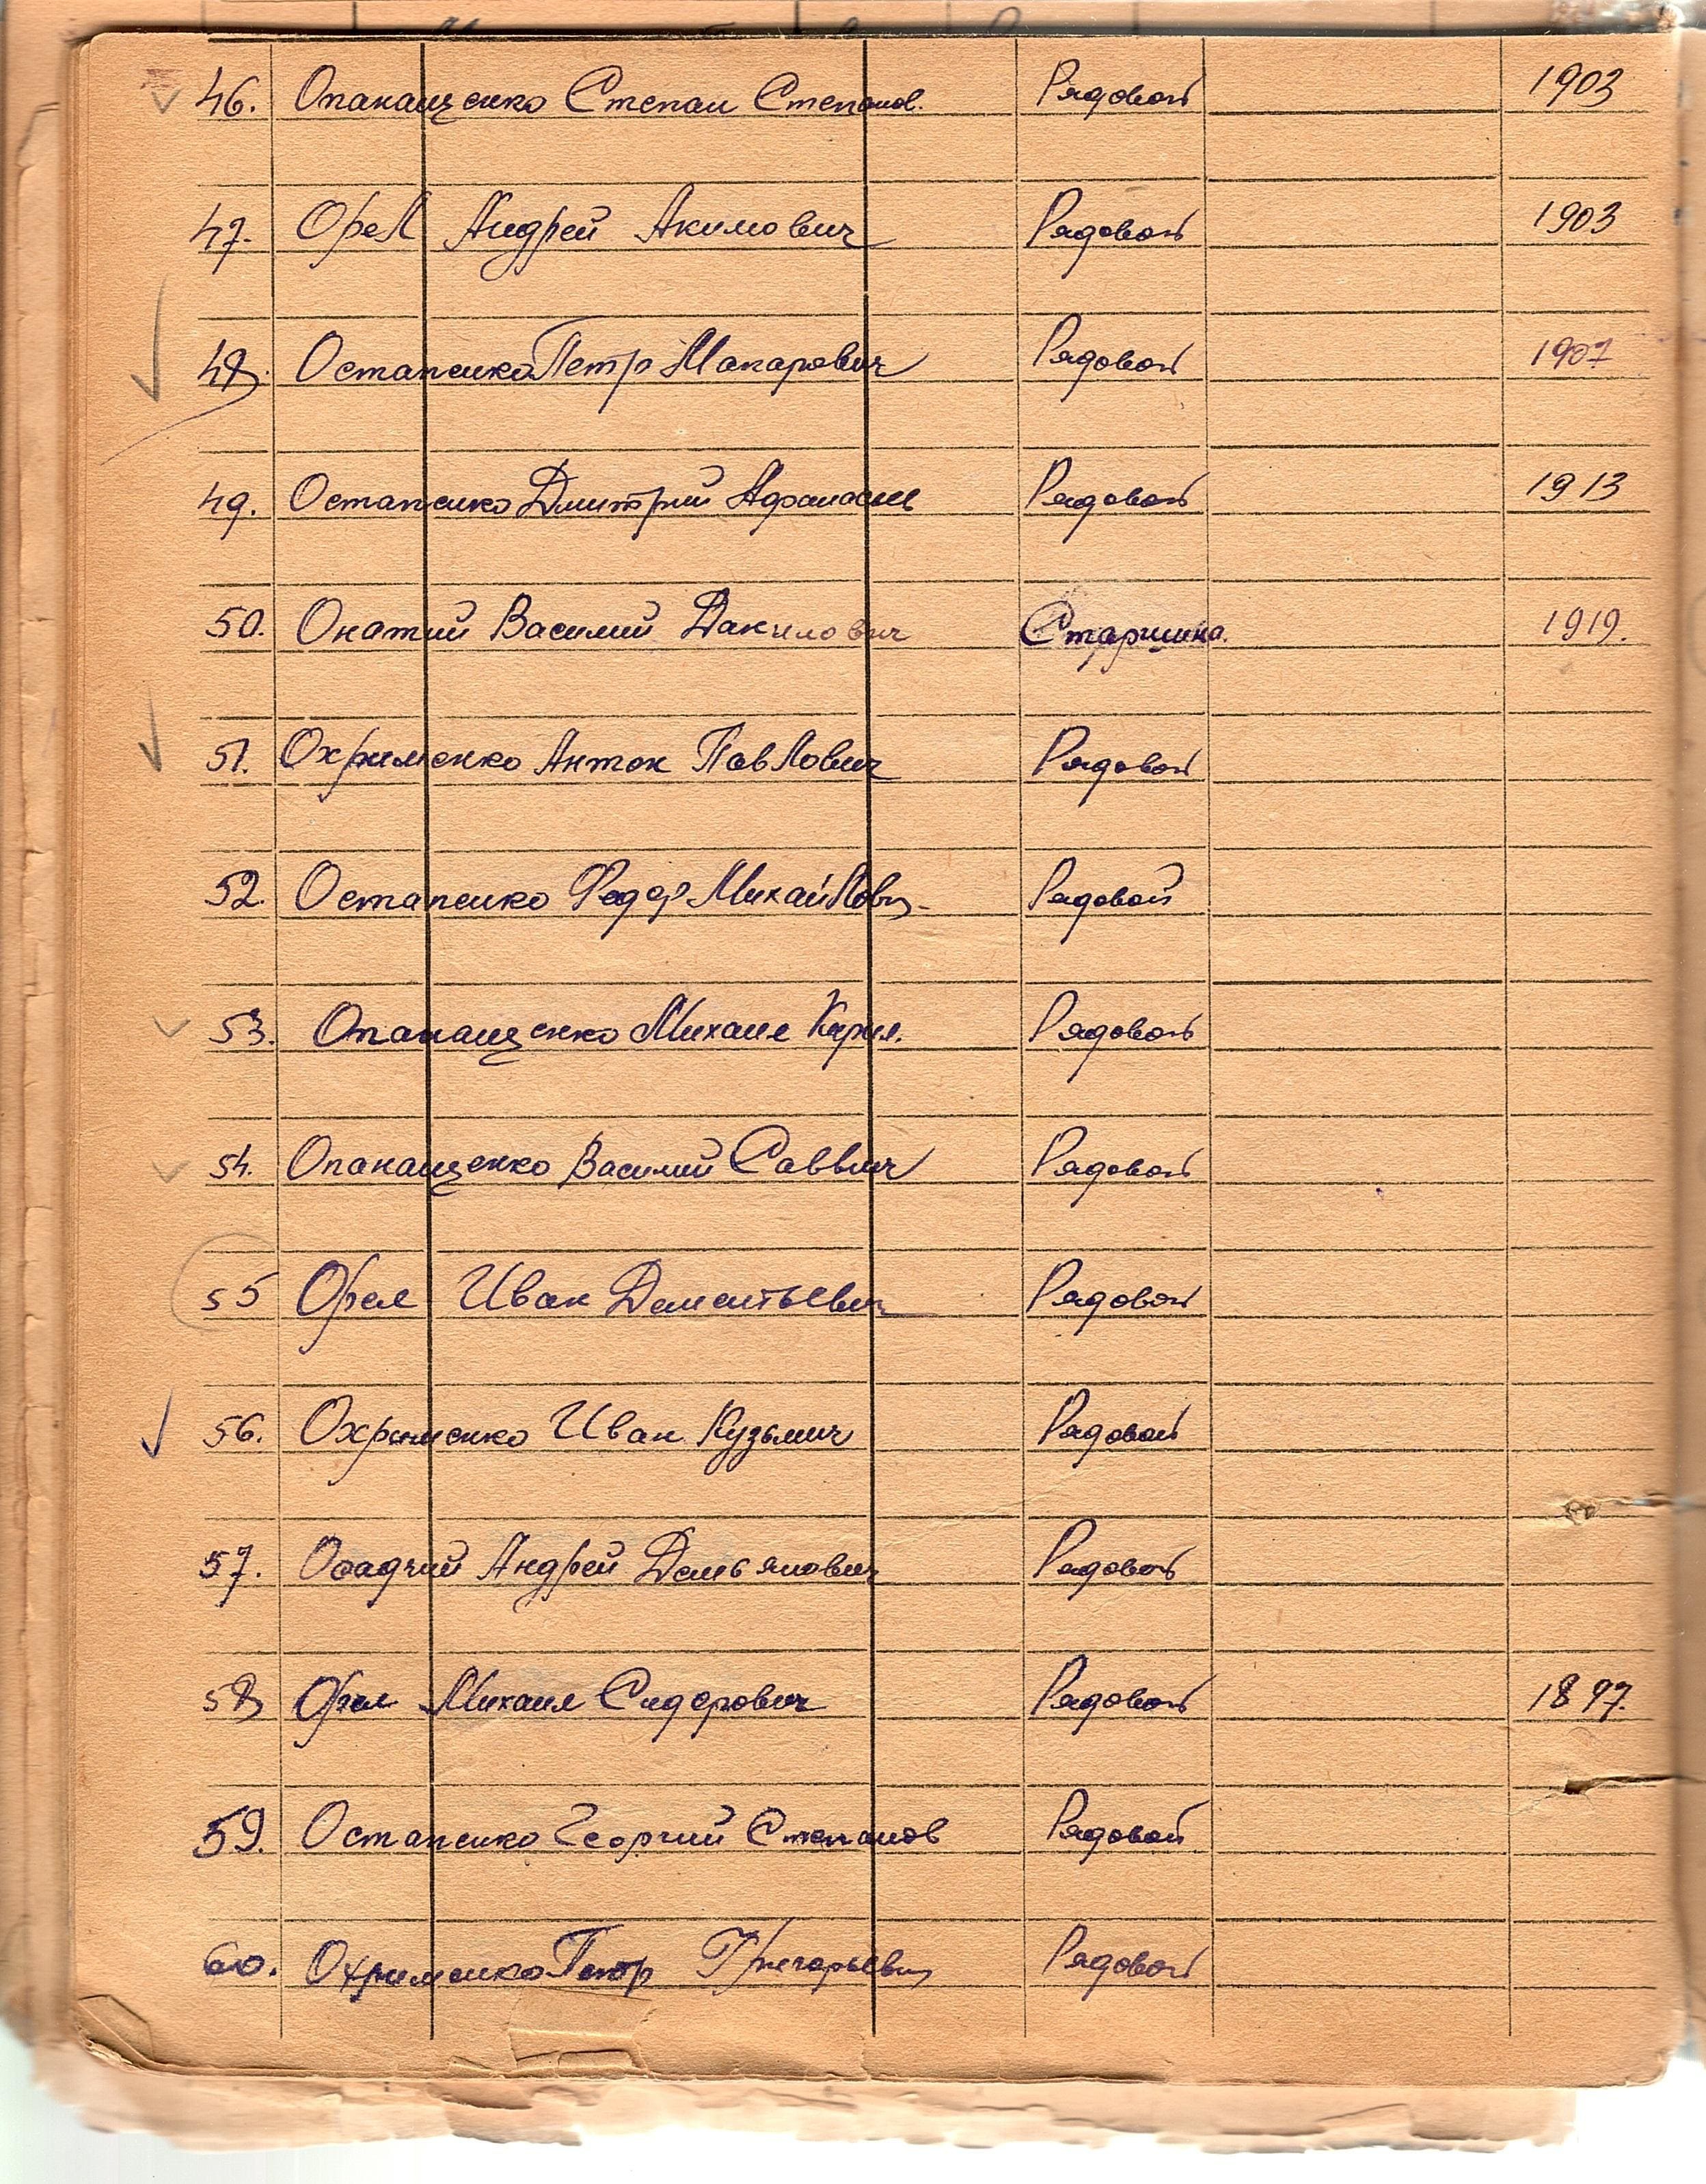 46. Опанащенко Степан Степанов. Рядовой 1903
47. Орел Андрей Акимович Рядовой 1903
48. Остапенко Петр Макарович Рядовой 1907
49. Остапенко Дмитрий Афанасьев Рядовой 1913
50. Онатий Василий Данилович Старшина. 1919.
51. Охрименко Антон Павлович Рядовой
52. Остапенко Федор Михайлович Рядовой
53. Опанащенко Михаил Кирил. Рядовой
54. Опанащенко Василий Саввич Рядовой
55 Орел Иван Дементьевич Рядовой
56. Охрименко Иван Кузьмич Рядовой
57. Осадчий Андрей Демьянович Рядовой
58 Орел Михаил Сидорович Рядовой 1897.
59. Остапенко Георгий Степанов Рядовой
60. Охрименко Петр Григорьевич Рядовой